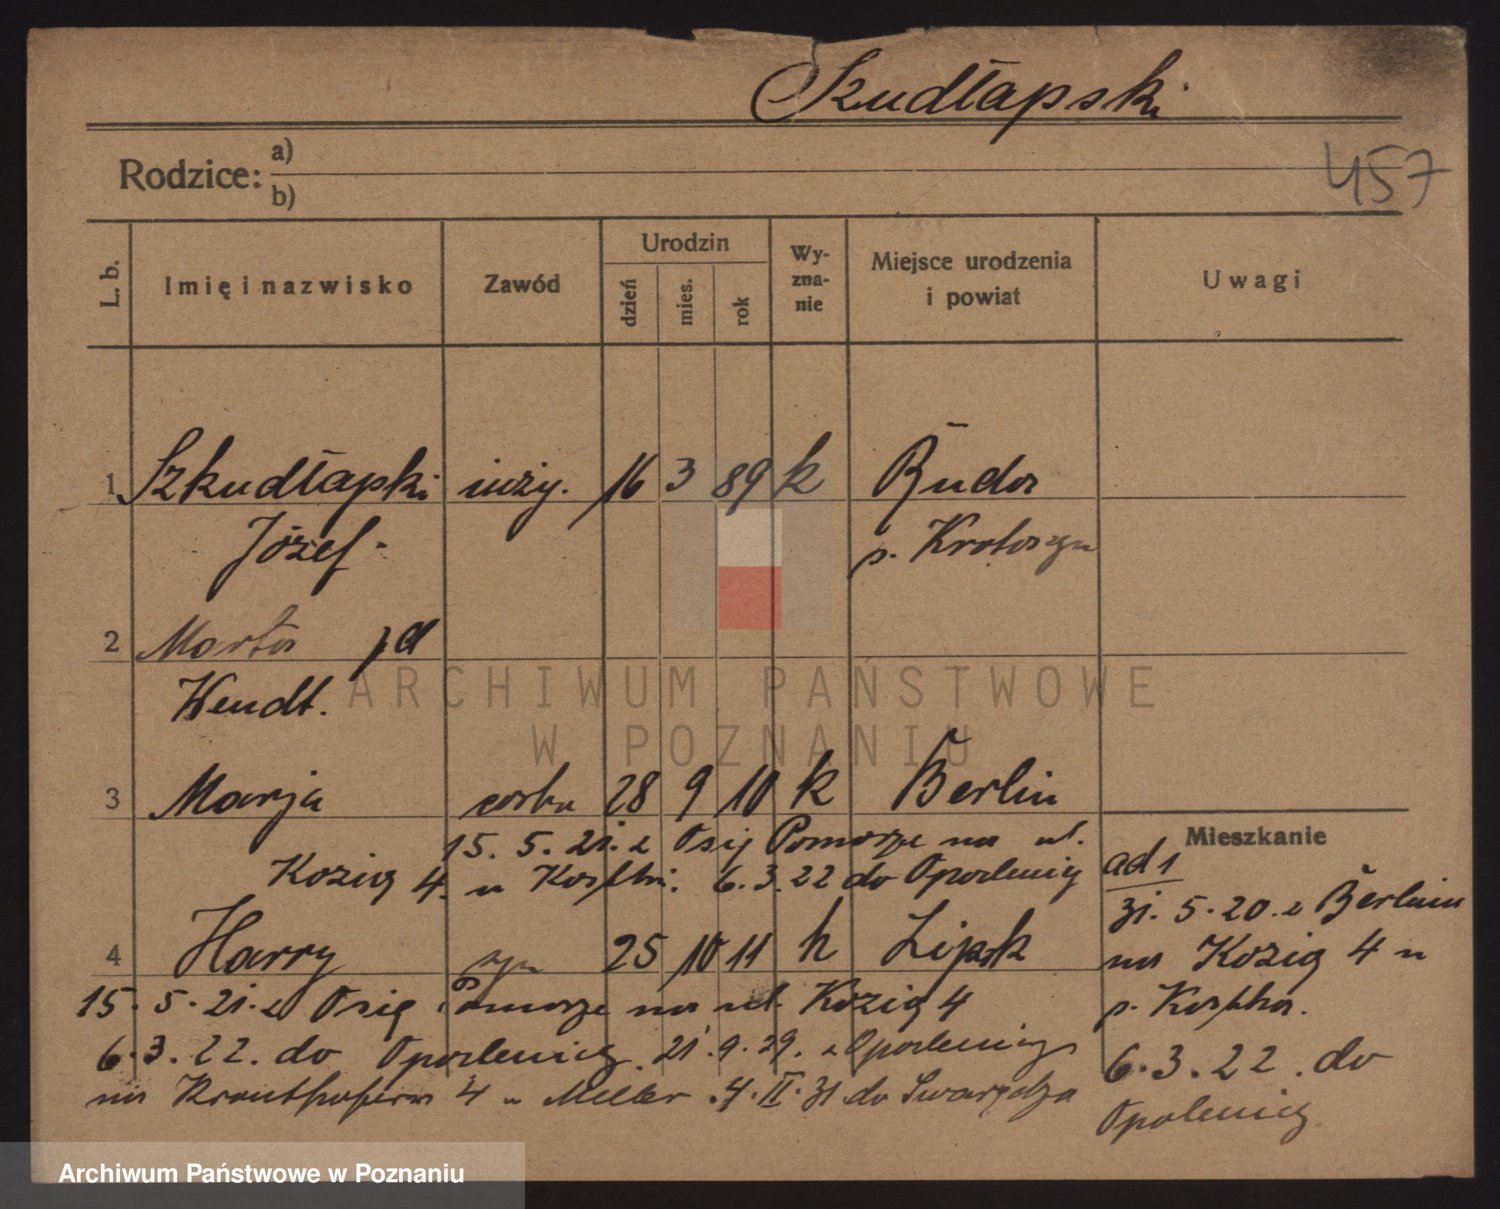 Szkudłapski
457
Rodzice: a)
b)
L. b. Imię i nazwisko Zawód Urodzin dzień mies. rok Wy-zna-nie Miejsce urodzenia i powiat Uwagi
1 Szkudłapski inży. 16 3 89 k Buda
Józef p. Krotoszyn
2 Marta
Wendt.
3 Marja córka 28 9 10 k Berlin
15. 5. 21. z Osig Pomorze na ul.
Kozią 4. 6. 3. 22 do
4 Harry syn 25 10 11 k Lipsk
15. 5. 21. z Osig Pomorze na ul. Kozią 4
6. 3. 22. do 21. 9. 29. z
na 4 u Meller. 4. II. 31 do Swarzędza
Mieszkanie
ad 1
31. 5. 20. z Berlina
na Kozią 4 u
p.
6. 3. 22. do
ARCHIWUM PAŃSTWOWE
W POZNANIU
Archiwum Państwowe w Poznaniu